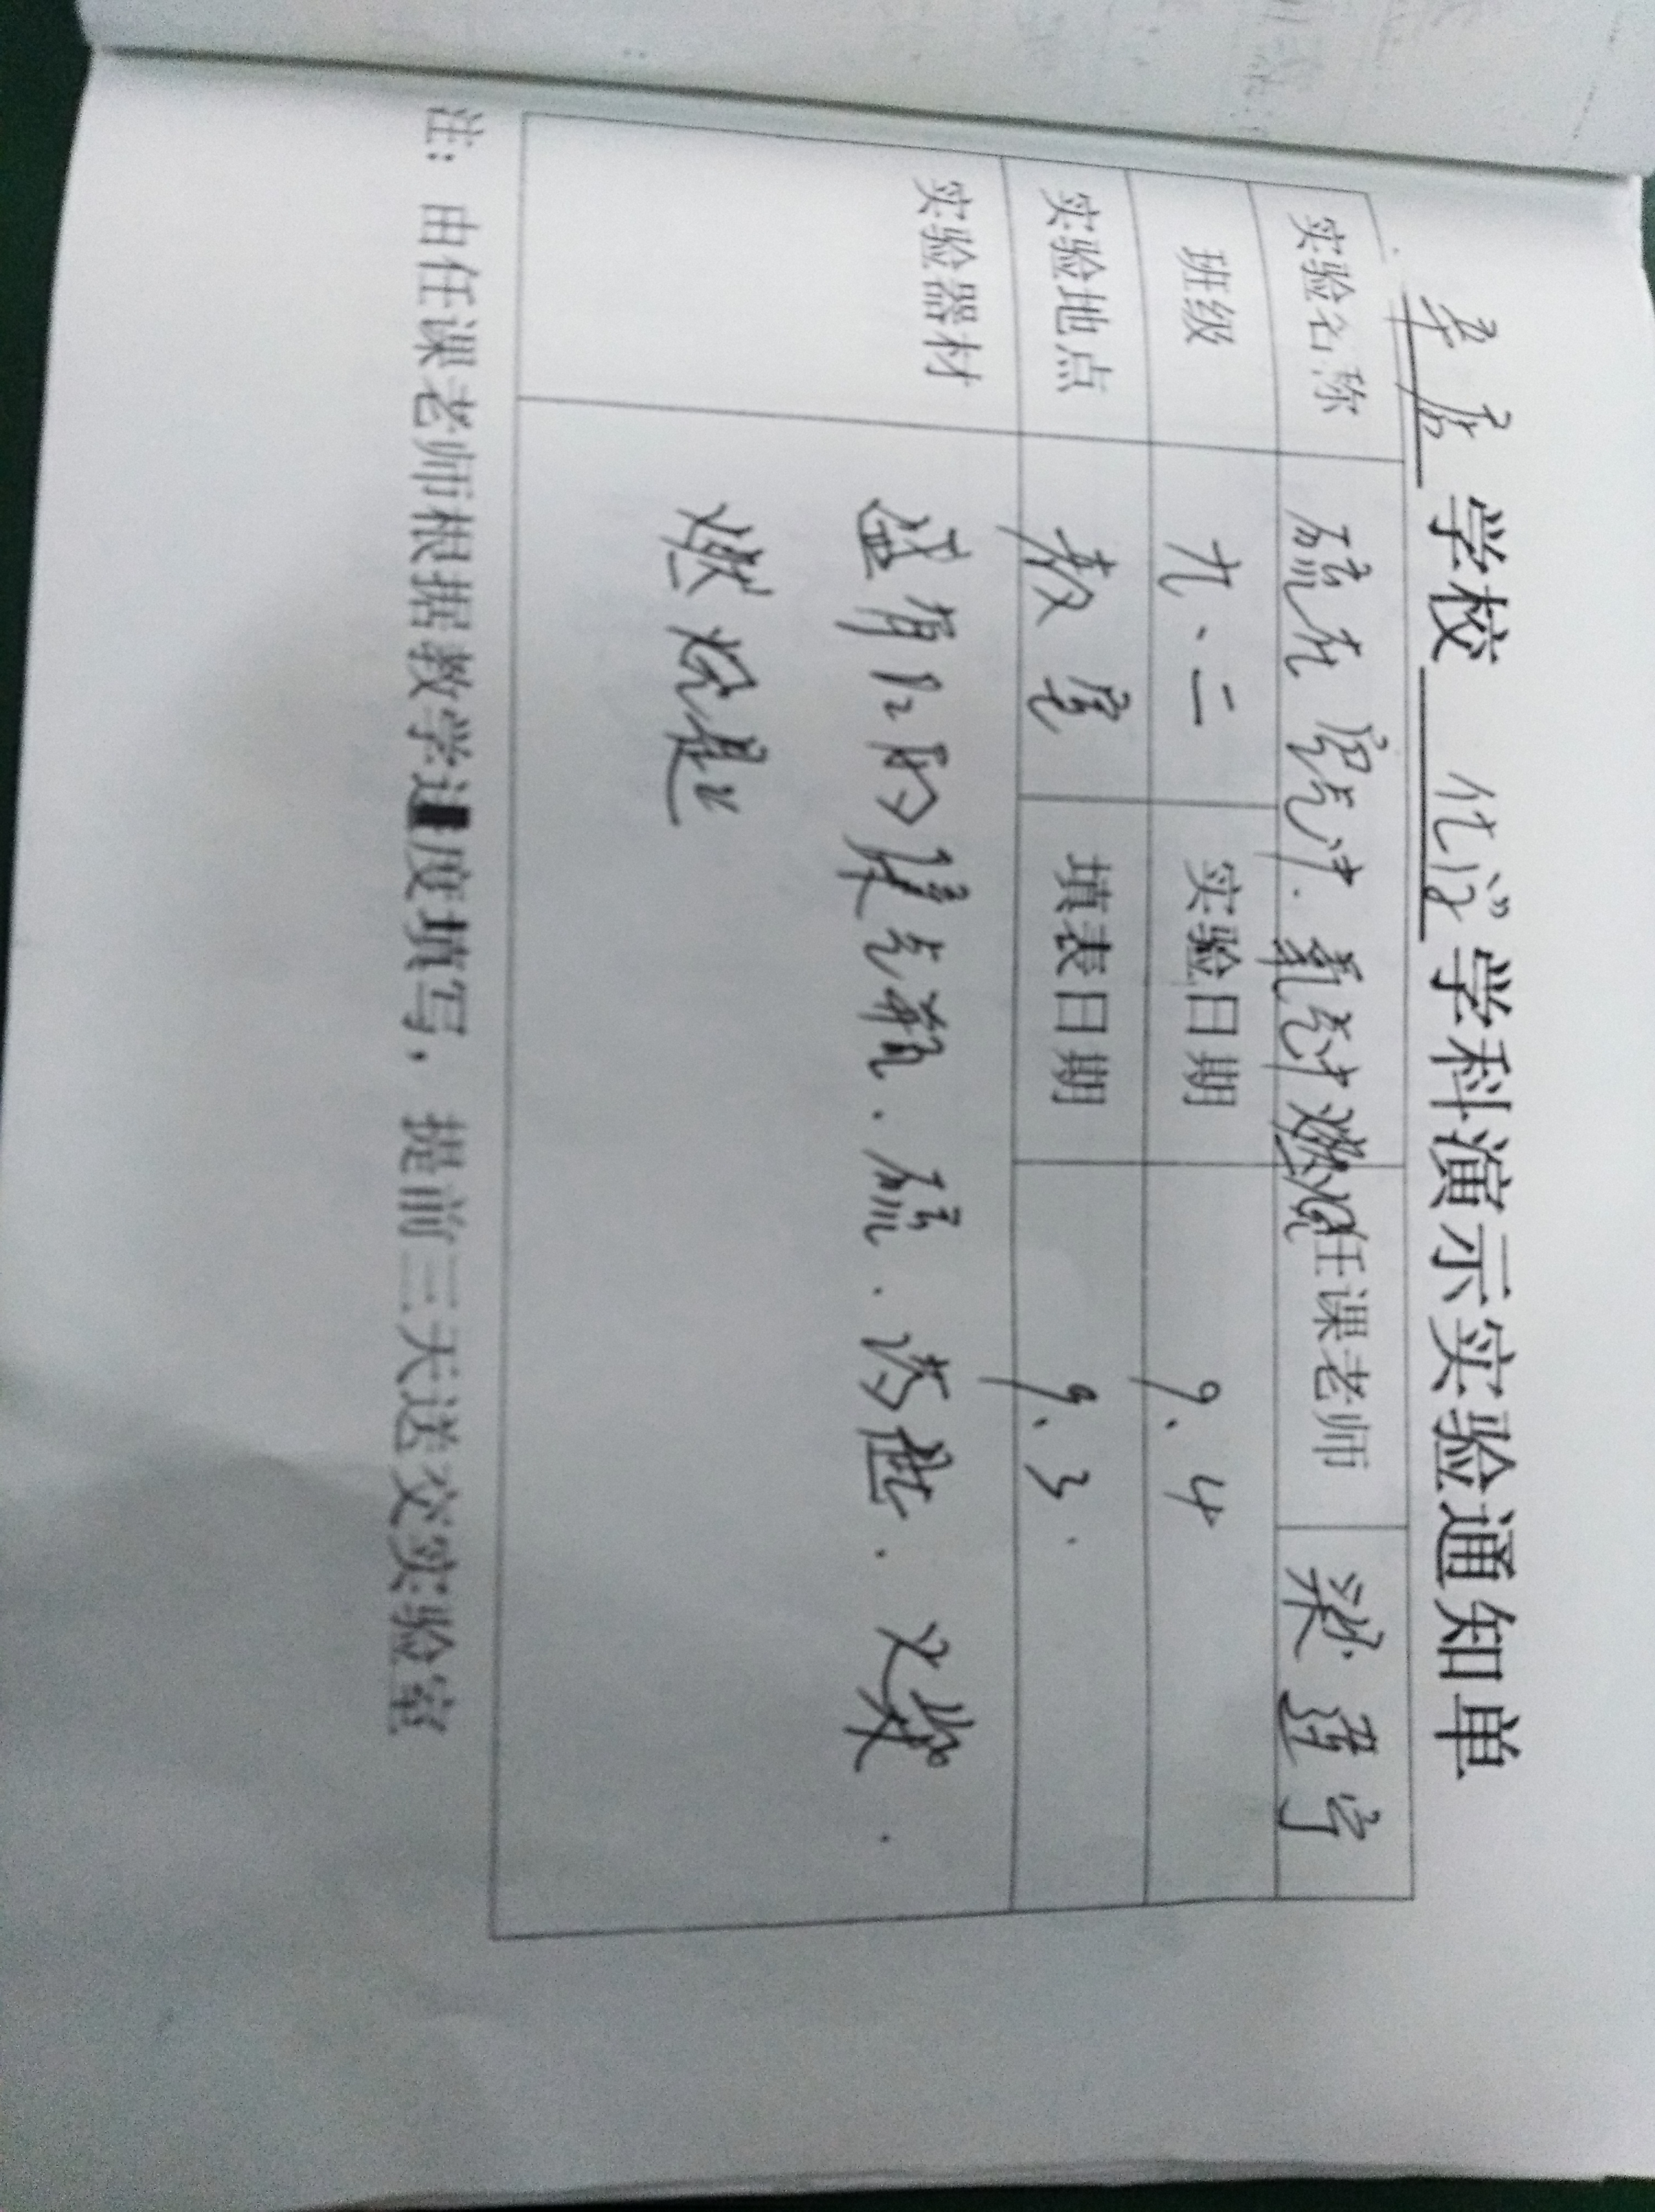 学校 化学 学科演示实验通知单
实验名称 硫在空气中.氧气中燃烧 任课老师 梁莲宁
班级 九、二 实验日期 9.4
实验地点 教室 填表日期 9.3.
实验器材 盛有O2的集气瓶.硫.药匙.火柴.
燃烧匙
注：由任课老师根据教学进度填写，提前三天送交实验室